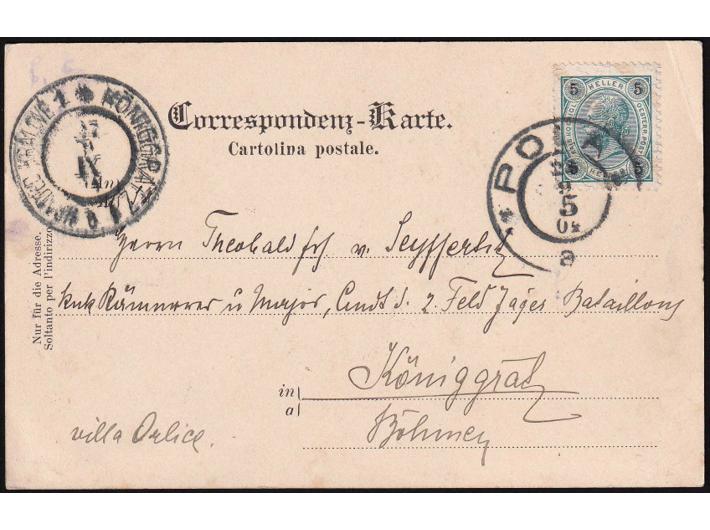 Correspondenz-Karte.
Cartolina postale.
5 5
HELLER
5 5
POLA
5
04
a
KÖNIGGRÄTZ 1
HRADEC KRÁLOVÉ 1
IX
Nur für die Adresse.
Soltanto per l'indirizzo.
Herrn Theobald frh. v. Seyffertitz
kuk Kämmerer u Major, Cmdt d. 2. Feld Jäger Bataillons
in
a
Königgrätz
Böhmen
villa Orlice.